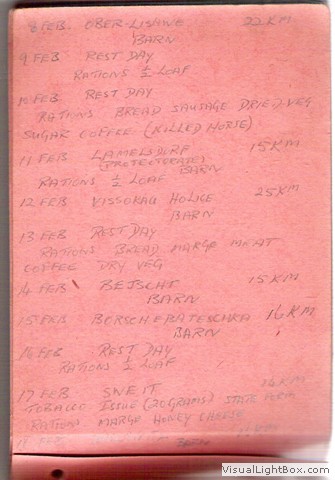 8 FEB. OBER-LISNNE 22 KM
BARN
9 FEB REST DAY
RATIONS ½ LOAF
10 FEB REST DAY
RATIONS BREAD SAUSAGE DRIED VEG
SUGAR COFFEE (KILLED HORSE)
11 FEB LAMELSDORF 15 KM
(PROTECTORATE)
RATIONS ½ LOAF BARN
12 FEB VISSOKAU HOLICE 25 KM
BARN
13 FEB REST DAY
RATIONS BREAD MARGE MEAT
COFFEE DRY VEG
14 FEB BEJSCHT 15 KM
BARN
15 FEB BORSCH 16 KM
BARN
16 FEB REST DAY
RATIONS ½ LOAF
17 FEB 16 KM
TOBACCO ISSUE (20 GRAMS) STATE FARM
RATIONS MARGE HONEY CHEESE
BARN
VisualLightBox.com